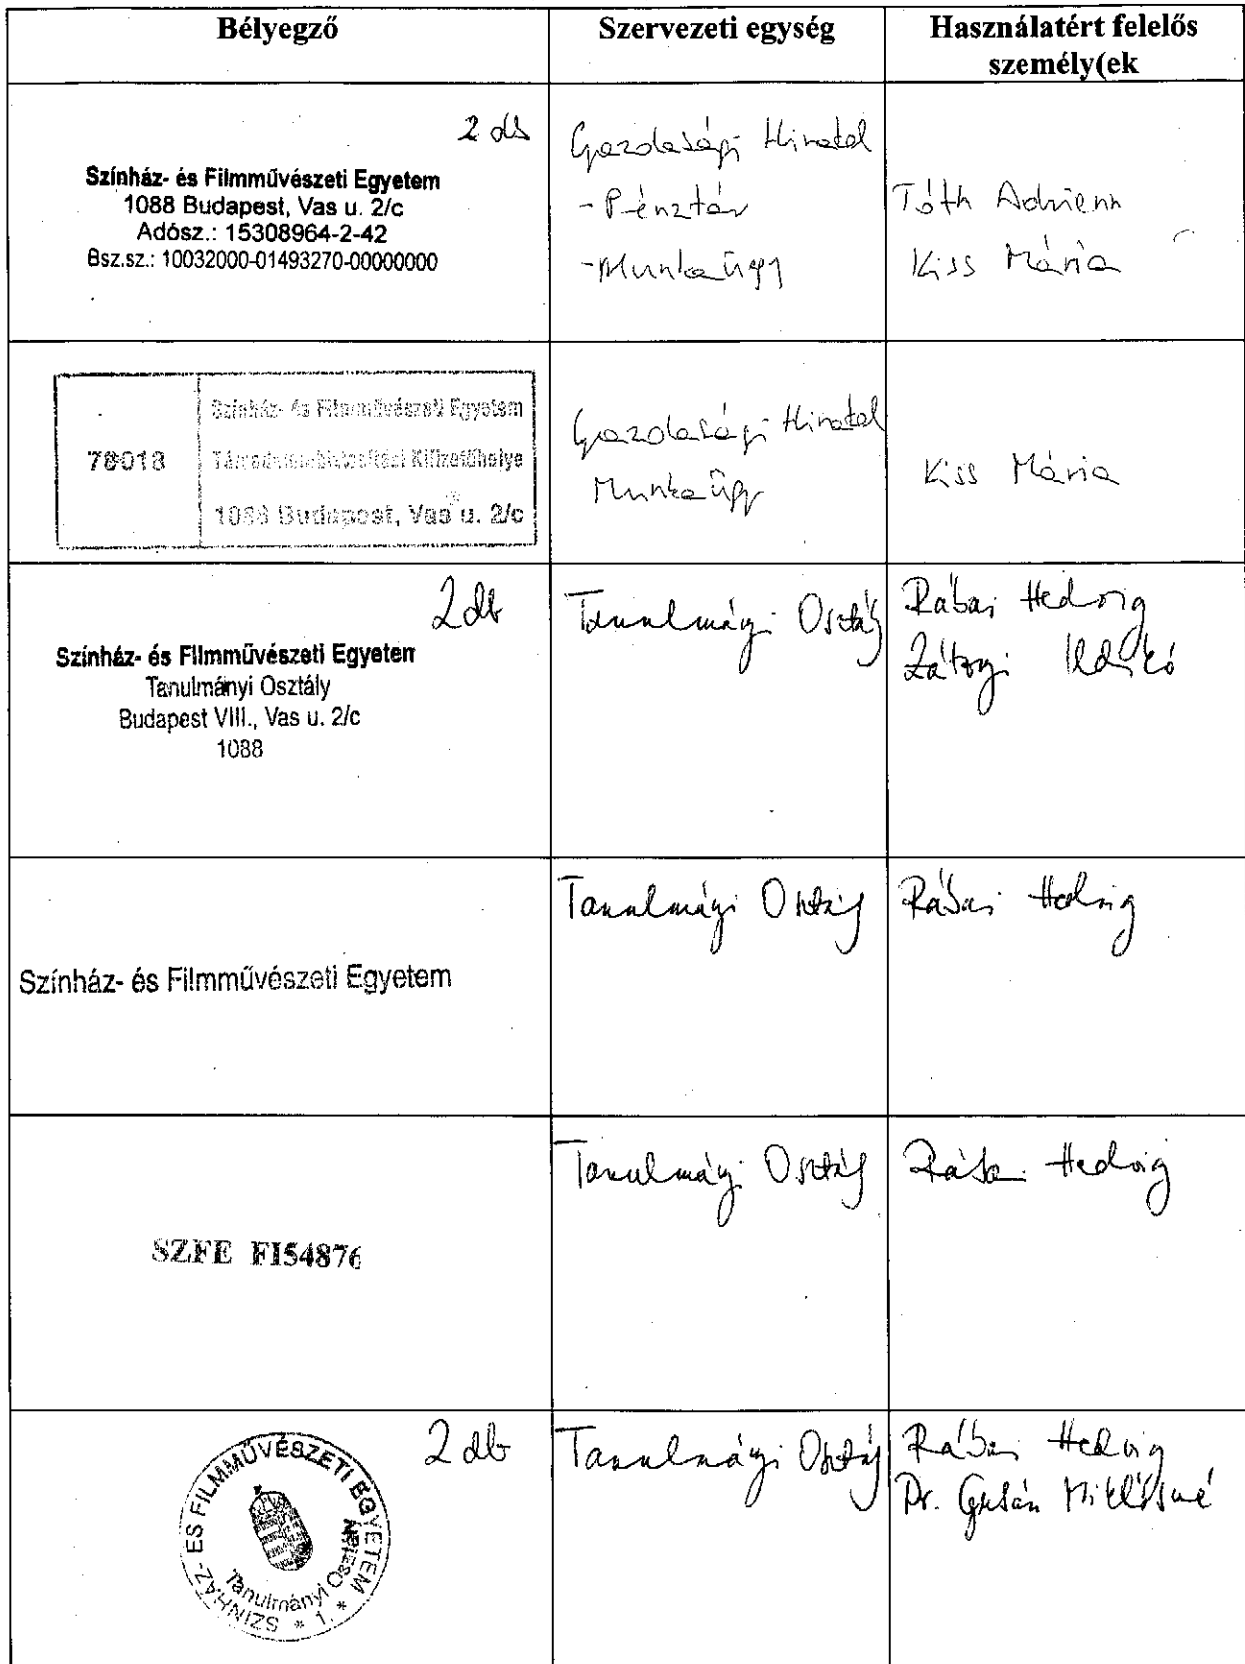 Bélyegző
Szervezeti egység
Használatért felelős
személy(ek
2 db
Színház- és Filmművészeti Egyetem
1088 Budapest, Vas u. 2/c
Adósz.: 15308964-2-42
Bsz.sz.: 10032000-01493270-00000000
Gazdasági Hivatal
- Pénztár
- Munkaügy
Tóth Adrienn
Kiss Mária
78018
Színház- és Filmművészeti Egyetem
Kifizetőhelye
1088 Budapest, Vas u. 2/c
Gazdasági Hivatal
Munkaügy
Kiss Mária
2 db
Színház- és Filmművészeti Egyetem
Tanulmányi Osztály
Budapest VIII., Vas u. 2/c
1088
Tanulmányi Osztály
Rábai Hedvig
Ildikó
Színház- és Filmművészeti Egyetem
Tanulmányi Osztály
Rábai Hedvig
SZFE FI54876
Tanulmányi Osztály
Rábai Hedvig
2 db
SZINHÁZ- ÉS FILMMŰVÉSZETI EGYETEM
Tanulmányi Osztály
* 1. *
Tanulmányi Osztály
Rábai Hedvig
Dr. Miklósné